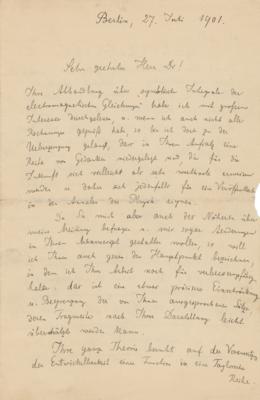 Berlin, 27. Juli 1901.
Sehr geehrter Herr Dr!
Ihre Abhandlung über „symbolische Integrale der
electromagnetischen Gleichungen" habe ich mit grossem
Interesse durchgelesen, u. wenn ich auch nicht alle
Rechnungen geprüft habe, so bin ich doch zu der
Ueberzeugung gelangt, dass in Ihrem Aufsatz eine
Reihe von Gedanken niedergelegt sind, die für die
Zukunft sich vielleicht als sehr wertvoll erweisen
werden u. daher sich jedenfalls für eine Veröffentlichung
in den Annalen der Physik eignen.
Da Sie mich aber auch des Näheren über
meine Meinung befragen u. mir sogar Aenderungen
in Ihrem Manuscript gestatten wollen, so will
ich Ihnen auch gern den Hauptpunkt bezeichnen,
in dem ich Ihre Arbeit noch für verbesserungsfähig
halte, das ist eine etwas präcisere Einschränkung
u. Begrenzung der von Ihnen ausgesprochenen Sätze,
deren Tragweite nach Ihrer Darstellung leicht
überschätzt werden kann.
Ihre ganze Theorie beruht auf der Voraussetzung
der Entwickelbarkeit einer Function in eine Taylorsche
Reihe.